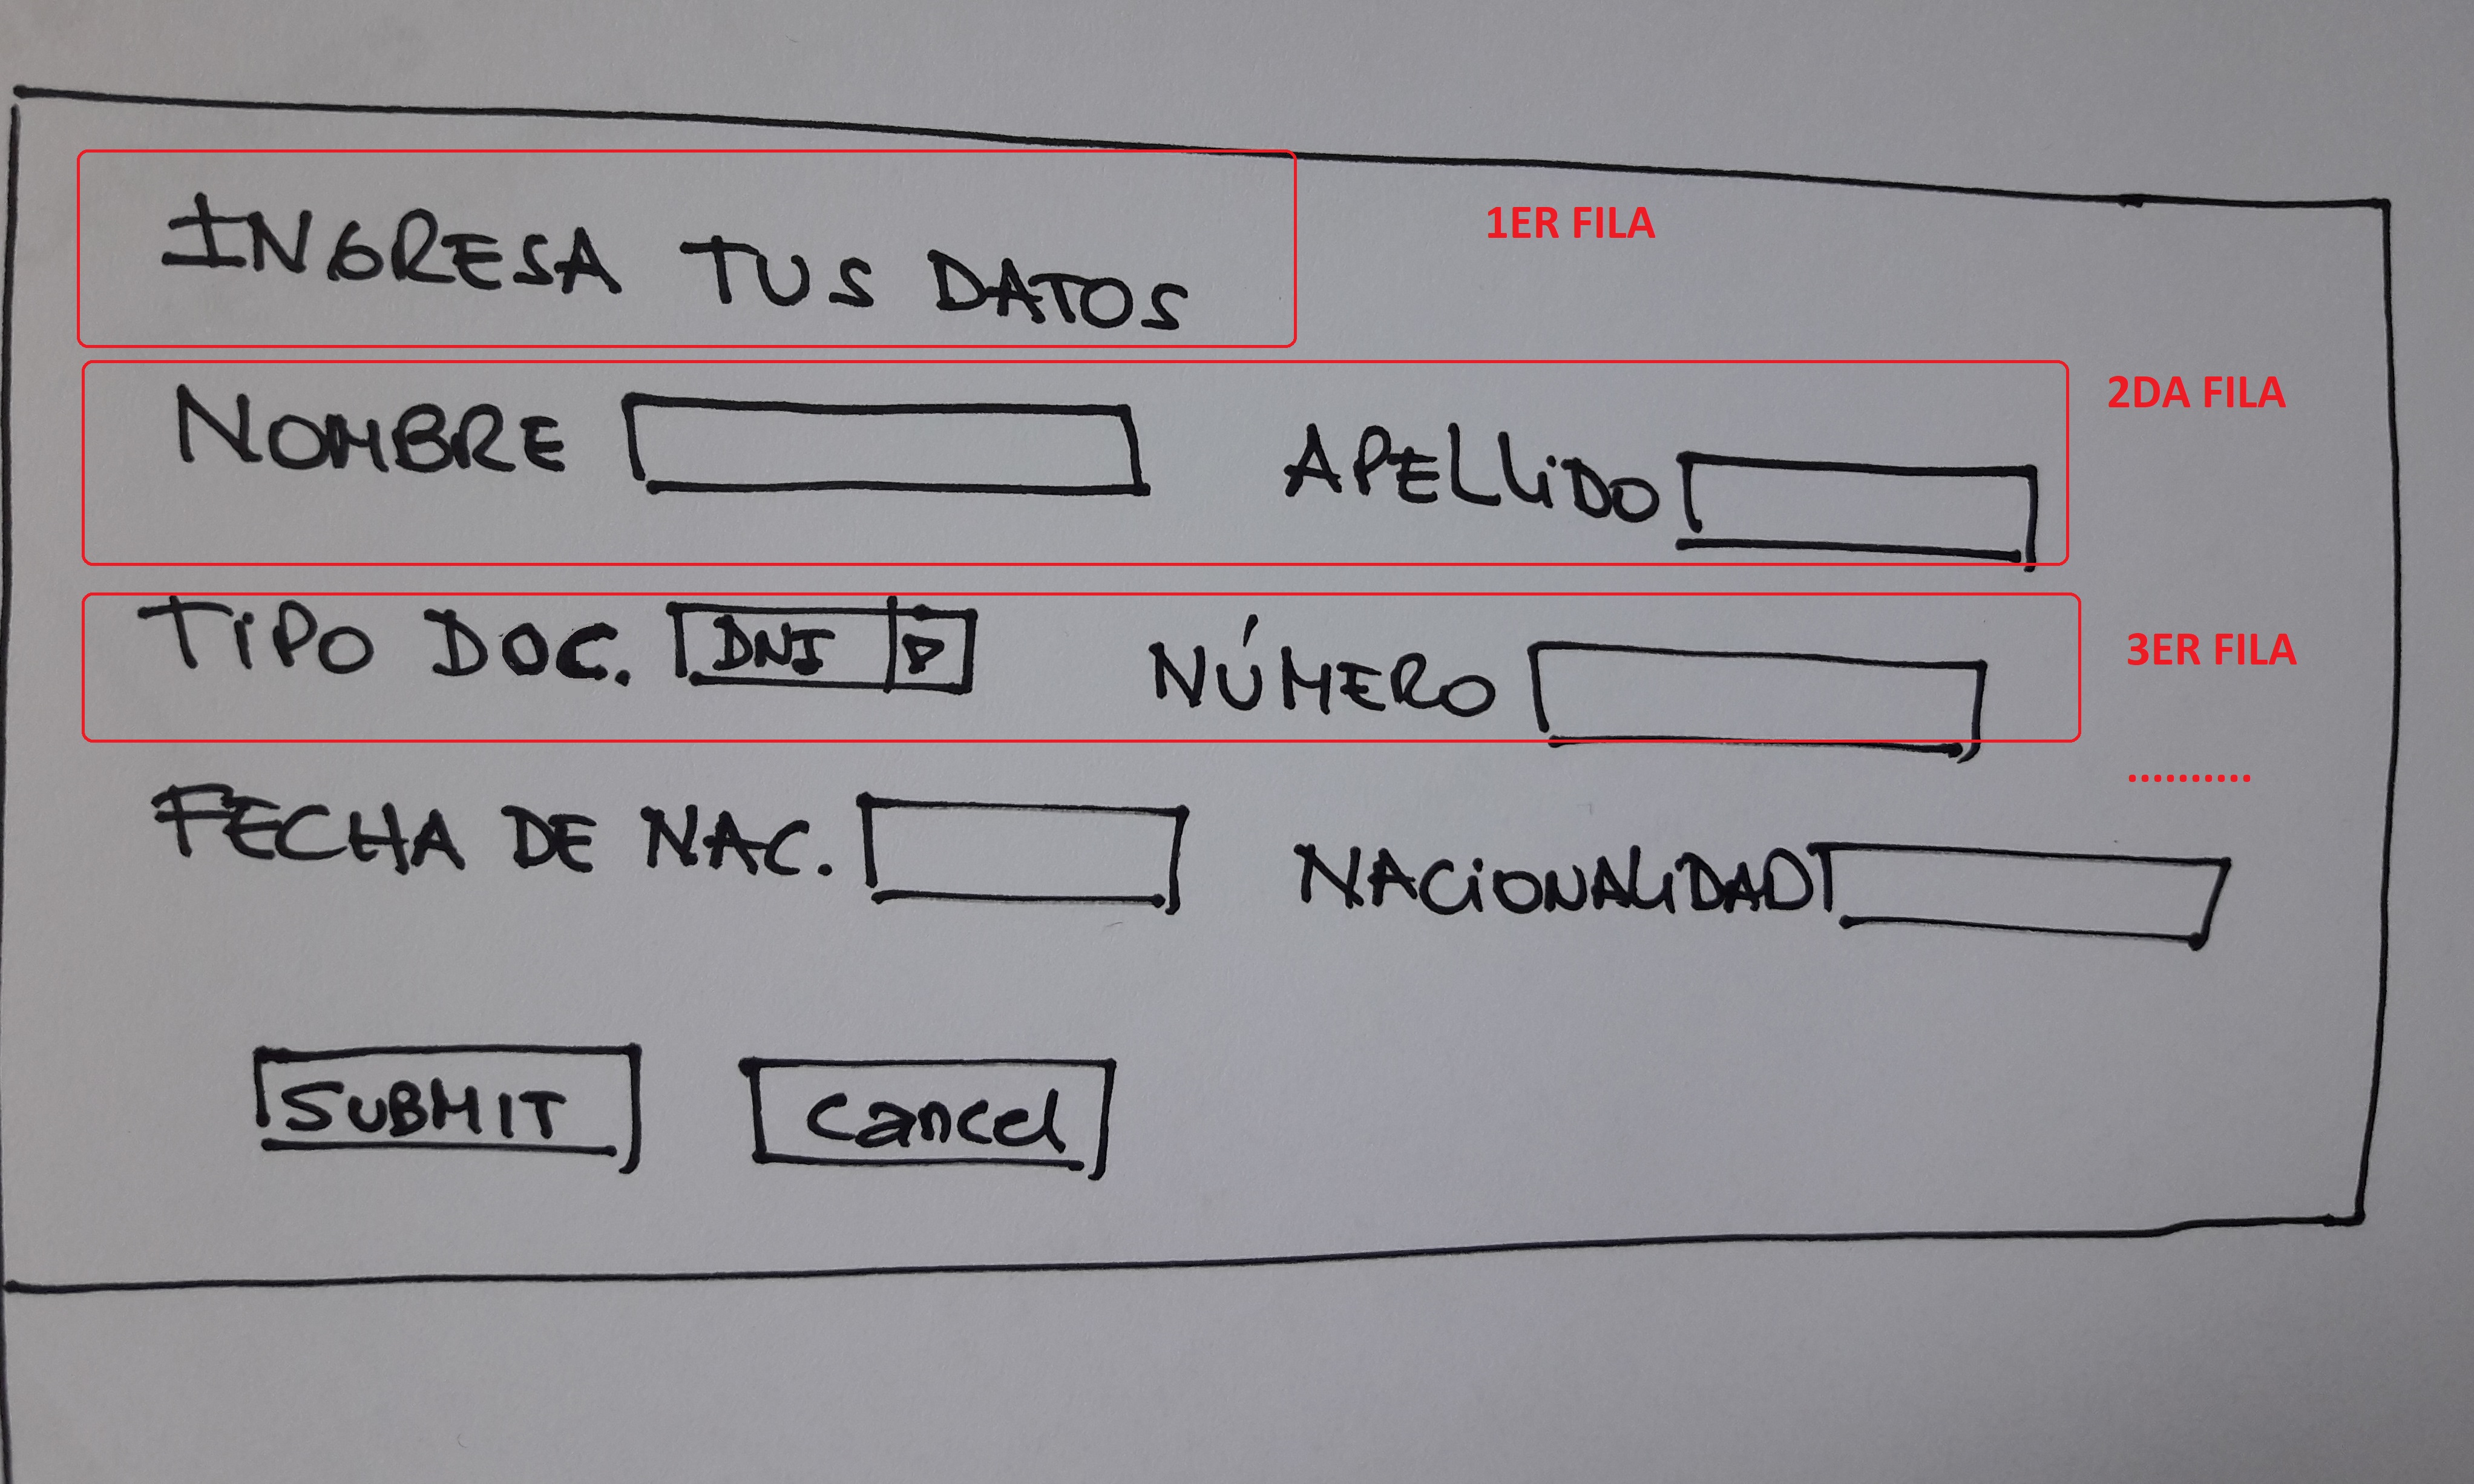 INGRESA TUS DATOS 1ER FILA
NOMBRE APELLIDO 2DA FILA
TIPO DOC. DNI NÚMERO 3ER FILA
...........
FECHA DE NAC. NACIONALIDAD
SUBMIT Cancel